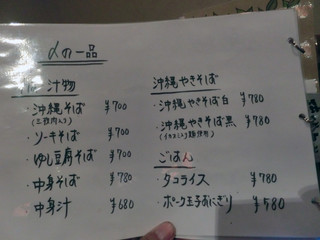 〆の一品
汁物
・沖縄そば ¥700
(三枚肉入り)
・ソーキそば ¥700
・ゆし豆腐そば ¥700
・中身そば ¥780
・中身汁 ¥680
沖縄やきそば
・沖縄やきそば白 ¥780
・沖縄やきそば黒 ¥780
ごはん
・タコライス ¥780
・ポーク玉子おにぎり ¥580